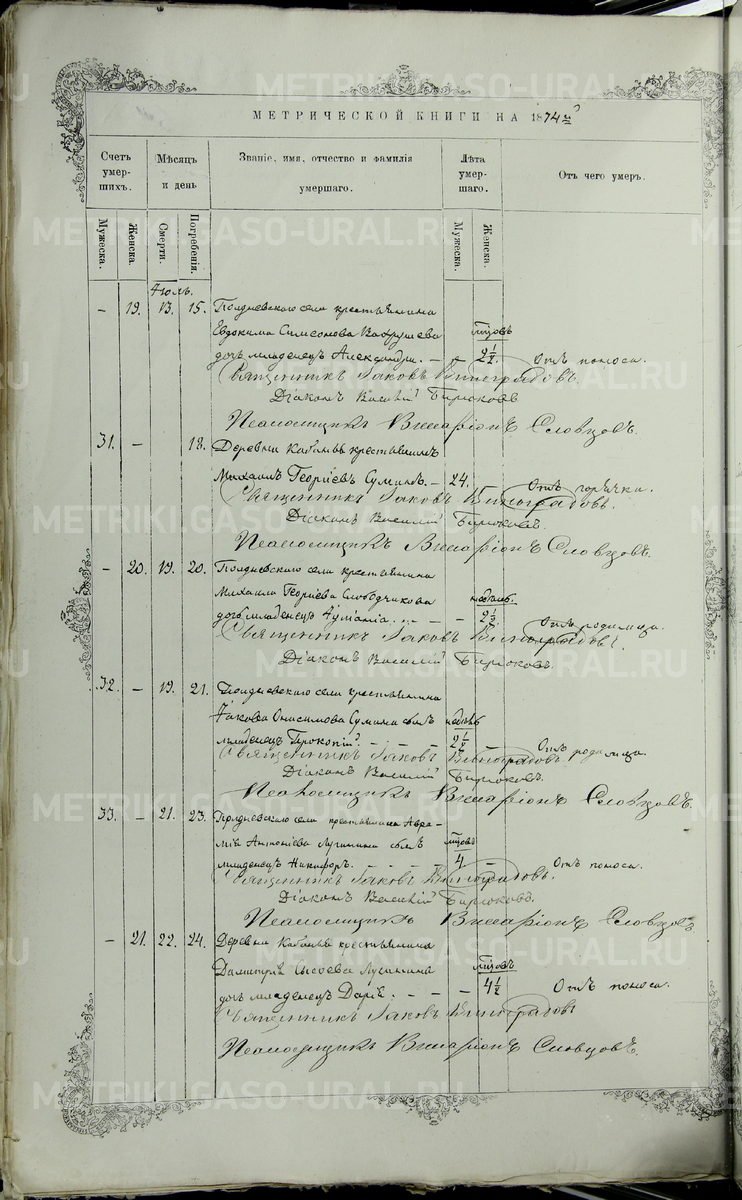 МЕТРИЧЕСКОЙ КНИГИ НА 1874 й
Счетъ умерших. Мѣсяцъ и день Званіе, имя, отчество и фамилія умершаго. Лѣта умершаго. Отъ чего умеръ.
Мужеска. Женска. Смерти. Погребенія. Мужеска. Женска.
Іюль.
– 19. 13. 15. Полдневскаго села крестьянина
Евдокима Симеонова Вахрушева мѣсцовъ
дочь младенецъ Александра. – – 2½ Отъ поноса.
Священникъ Іаковъ Виноградовъ.
Діаконъ Василій Бирюковъ
Псаломщикъ Виссаріонъ Словцовъ.
31. – 18. Деревни крестьянинъ
Михаилъ Георгіевъ Суминъ. – 24. Отъ горячки.
Священникъ Іаковъ Виноградовъ.
Діаконъ Василий Бирюковъ
Псаломщикъ Виссаріонъ Словцовъ.
– 20. 19. 20. Полдневскаго села крестьянина
Михаила Георгіева Слободчикова недѣль.
дочь младенецъ – – 2½ Отъ родимца.
Священникъ Іаковъ Виноградовъ.
Діаконъ Василий Бирюковъ.
32. – 19. 21. Полдневскаго села крестьянина
Іакова Онисимова Сумина сынъ недѣль
младенецъ Прокопій. – – – 2½ – Отъ родимца.
Священникъ Іаковъ Виноградовъ
Діаконъ Василий Бирюковъ.
Псаломщикъ Виссаріонъ Словцовъ.
33. – 21. 23. Полдневскаго села крестьянина Авра-
мія Антоніева Лугинина сынъ мѣсцовъ
младенецъ Никифоръ. – – – 4 – Отъ поноса.
Священникъ Іаковъ Виноградовъ.
Діаконъ Василій Бирюковъ.
Псаломщикъ Виссаріонъ Словцовъ
– 21. 22. 24. Деревни крестьянина
Димитрія Сысоева Лугинина мѣсцовъ
дочь младенецъ Дарія. – – – 4½ Отъ поноса.
Священникъ Іаковъ Виноградовъ
Псаломщикъ Виссаріонъ Словцовъ.
METRIKI.GASO-URAL.RU